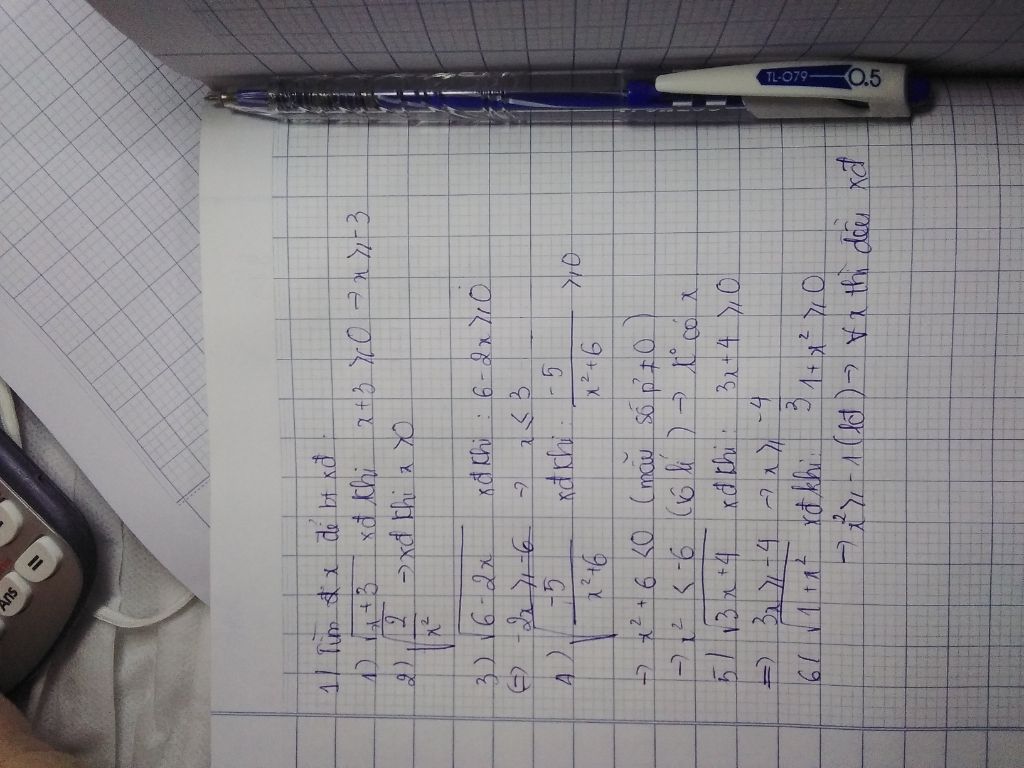 1) Tìm đ x để bt xđ.
1) √(x+3) xđ khi x+3 ⩾ 0 → x ⩾ -3
2) √(2/x²) → xđ khi x > 0
3) √(6-2x) xđ khi : 6-2x ⩾ 0
(=) -2x ⩾ -6 → x ≤ 3
4) √(-5/(x²+6)) xđ khi : -5/(x²+6) ⩾ 0
→ x²+6 < 0 (mẫu số p² ≠ 0)
→ x² < -6 (vô lí) → k° có x
5) √(3x+4) xđ khi : 3x+4 ⩾ 0
=) 3x ⩾ -4 → x ⩾ -4/3
6) √(1+x²) xđ khi : 1+x² ⩾ 0
→ x² ⩾ -1 (lđ) → ∀x thì đều xđ
TL-079 0.5
=
Ans